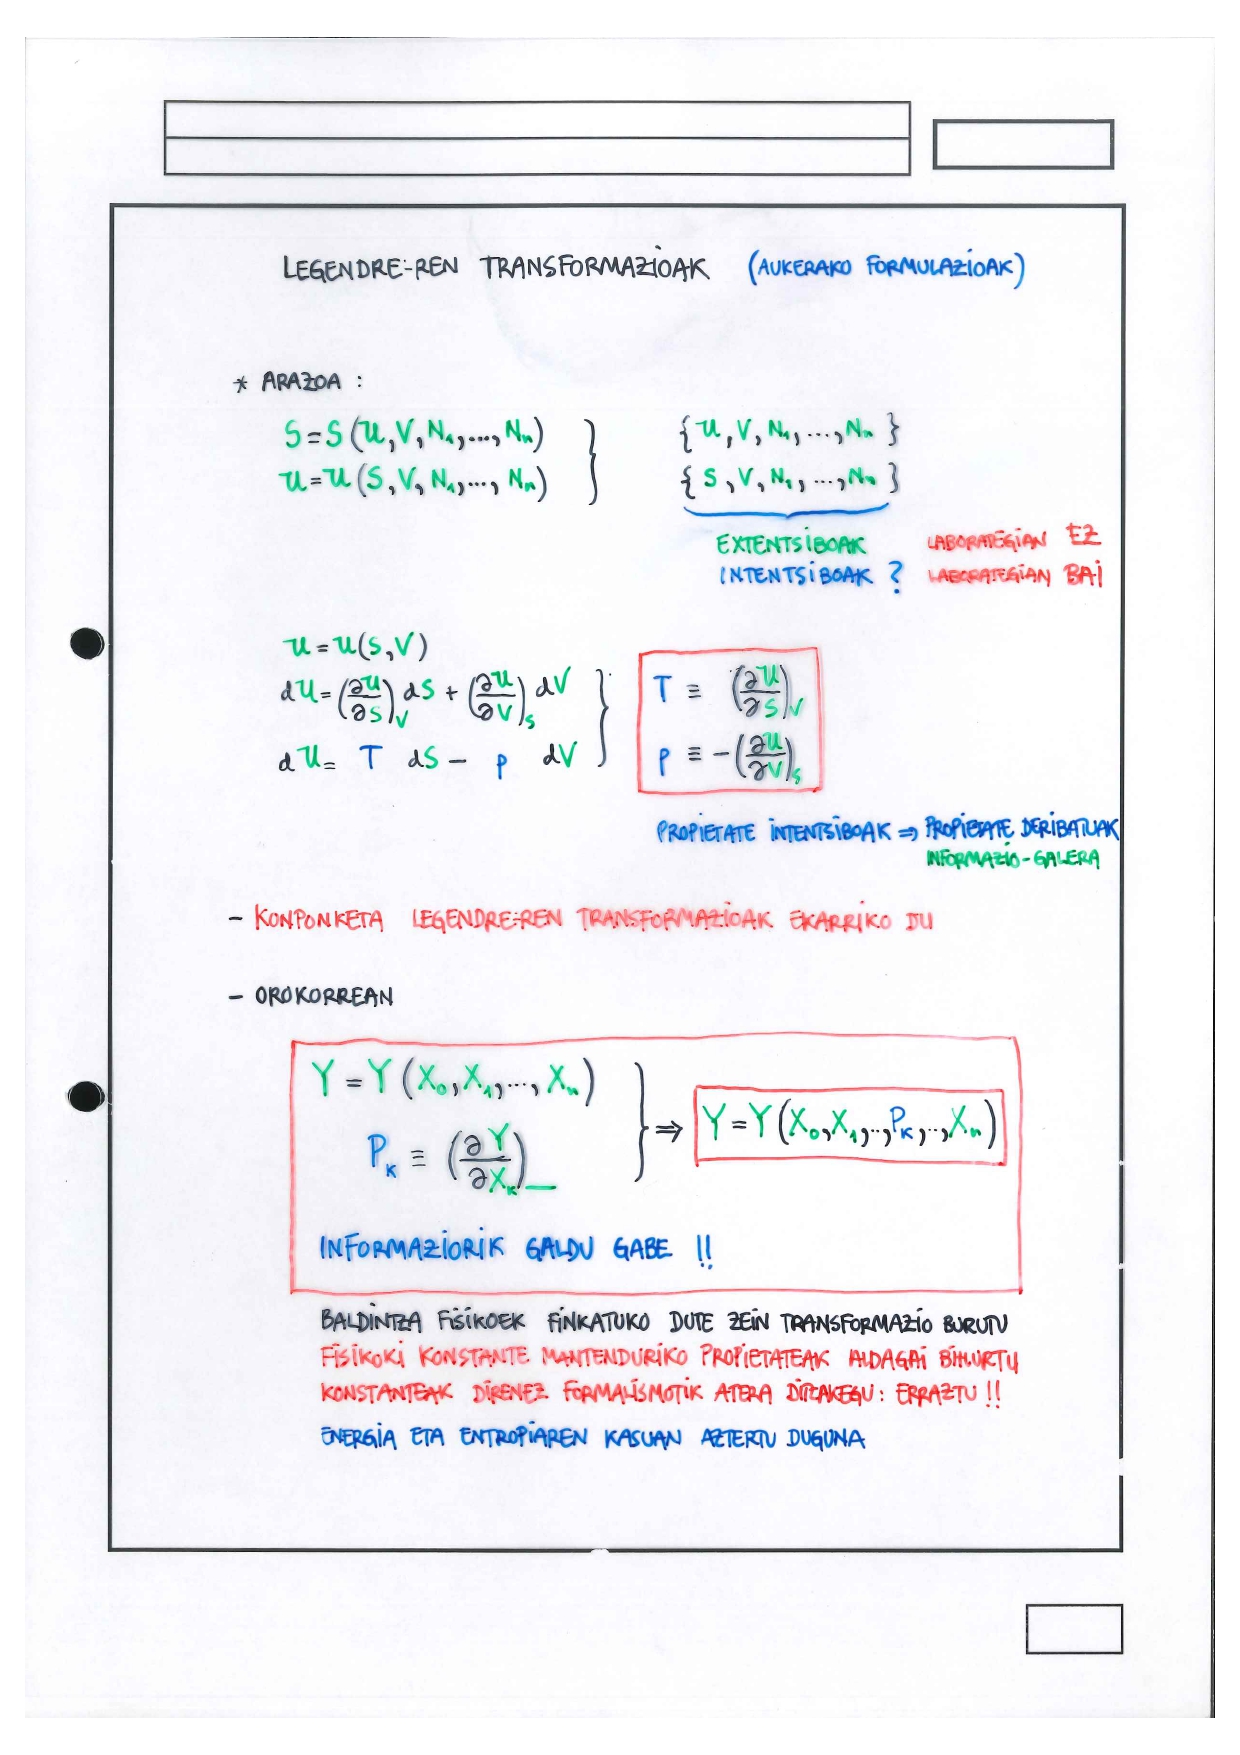 LEGENDRE-REN TRANSFORMAZIOAK (AUKERAKO FORMULAZIOAK)
* ARAZOA :
S = S (U, V, N₁, ..., Nₙ) } {U, V, N₁, ..., Nₙ}
U = U (S, V, N₁, ..., Nₙ) {S, V, N₁, ..., Nₙ}
EXTENTSIBOAK LABORATEGIAN EZ
INTENTSIBOAK ? LABORATEGIAN BAI
U = U(S, V)
dU = (∂U/∂S)_V dS + (∂U/∂V)_S dV } T ≡ (∂U/∂S)_V
dU = T dS - P dV P ≡ -(∂U/∂V)_S
PROPIETATE INTENTSIBOAK ⇒ PROPIETATE DERIBATUAK
INFORMAZIO-GALERA
- KONPONKETA LEGENDRE-REN TRANSFORMAZIOAK EKARRIKO DU
- OROKORREAN
Y = Y (X₀, X₁, ..., Xₙ) } ⇒ Y = Y (X₀, X₁, .., P_K, .., Xₙ)
P_K ≡ (∂Y/∂X_K)_
INFORMAZIORIK GALDU GABE !!
BALDINTZA FISIKOEK FINKATUKO DUTE ZEIN TRANSFORMAZIO BURUTU
FISIKOKI KONSTANTE MANTENDURIKO PROPIETATEAK ALDAGAI BIHURTU
KONSTANTEAK DIRENEZ FORMALISMOTIK ATERA DITZAKEGU : ERRAZTU !!
ENERGIA ETA ENTROPIAREN KASUAN AZTERTU DUGUNA